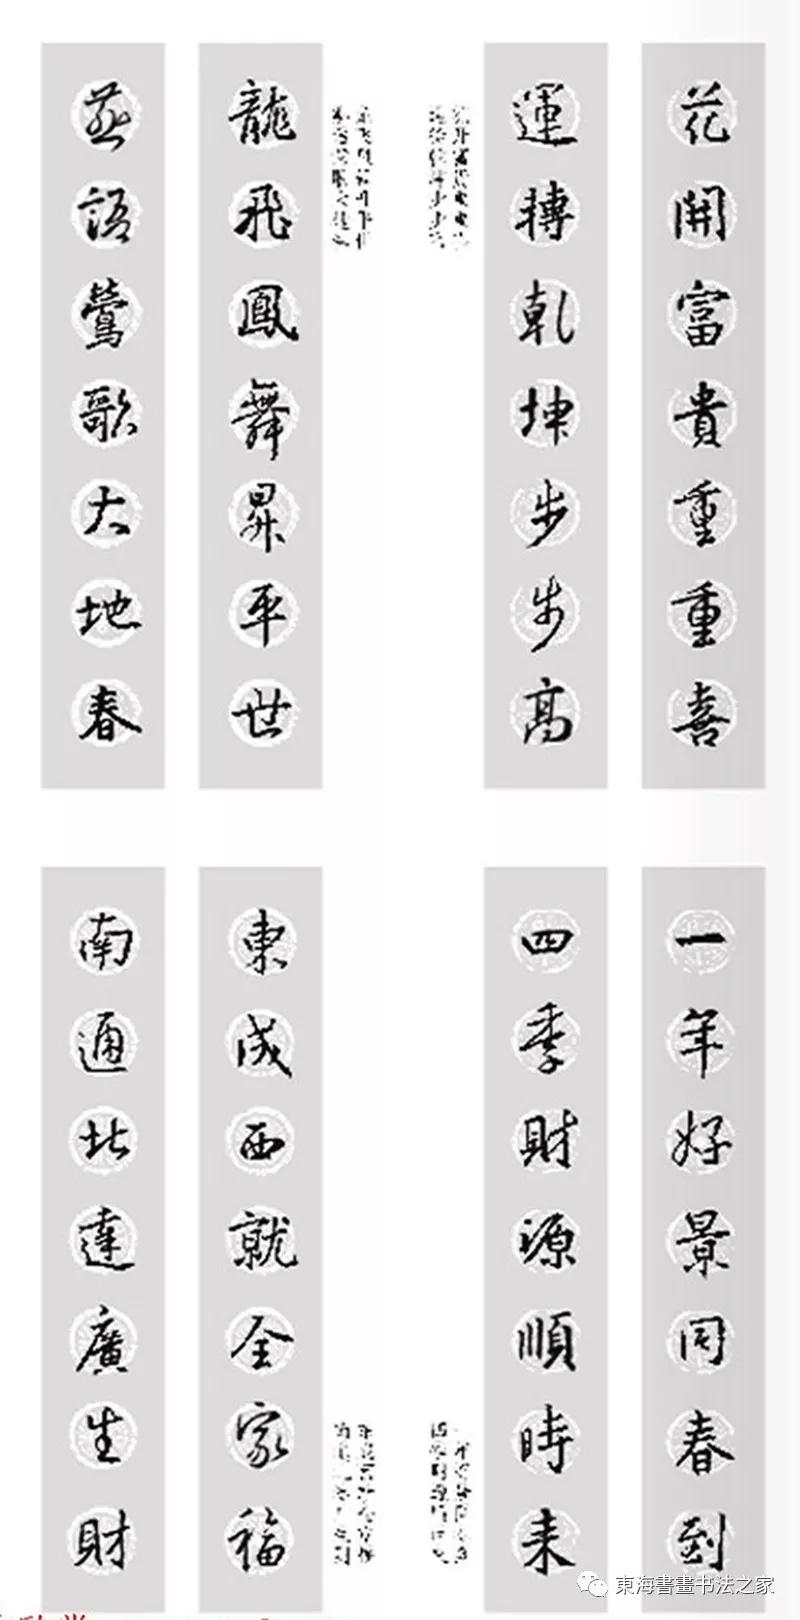 花開富貴重重喜
運搏乾坤步步高
龍飛鳳舞昇平世
燕語鶯歌大地春
一年好景同春到
四季財源順時来
東成西就全家福
南通北達廣生財
東海書畫书法之家